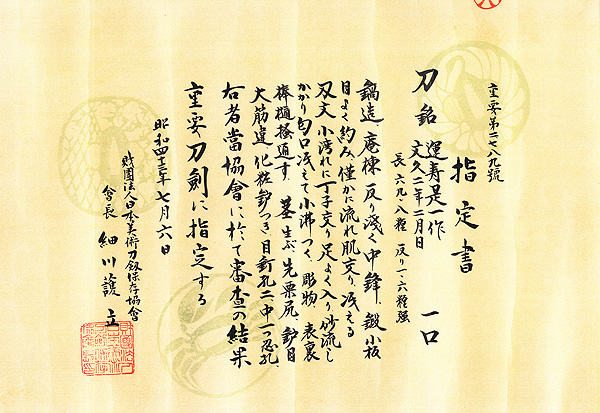 重要第二七八九號
指定書
刀 銘 運寿是一作 一口
文久二年二月日
長 六九・八糎 反り一・六糎强
鎬造、庵棟、反り淺く中鋒、鍛 小板
目よく約み、僅かに流れ肌交り、冴える
刃文 小湾れに丁子交り足よく入り砂流し
かかり匂口冴えて小沸つく、彫物 表裏
棒樋搔通す 茎 生ぶ 先栗尻 鈩目
大筋違 化粧鈩つき 目釘孔二、中一つ忍孔
右者當協會に於て審査の結果
重要刀劍に指定する
昭和四十三年七月六日
財團法人日本美術刀剱保存協會
會長 細川護立